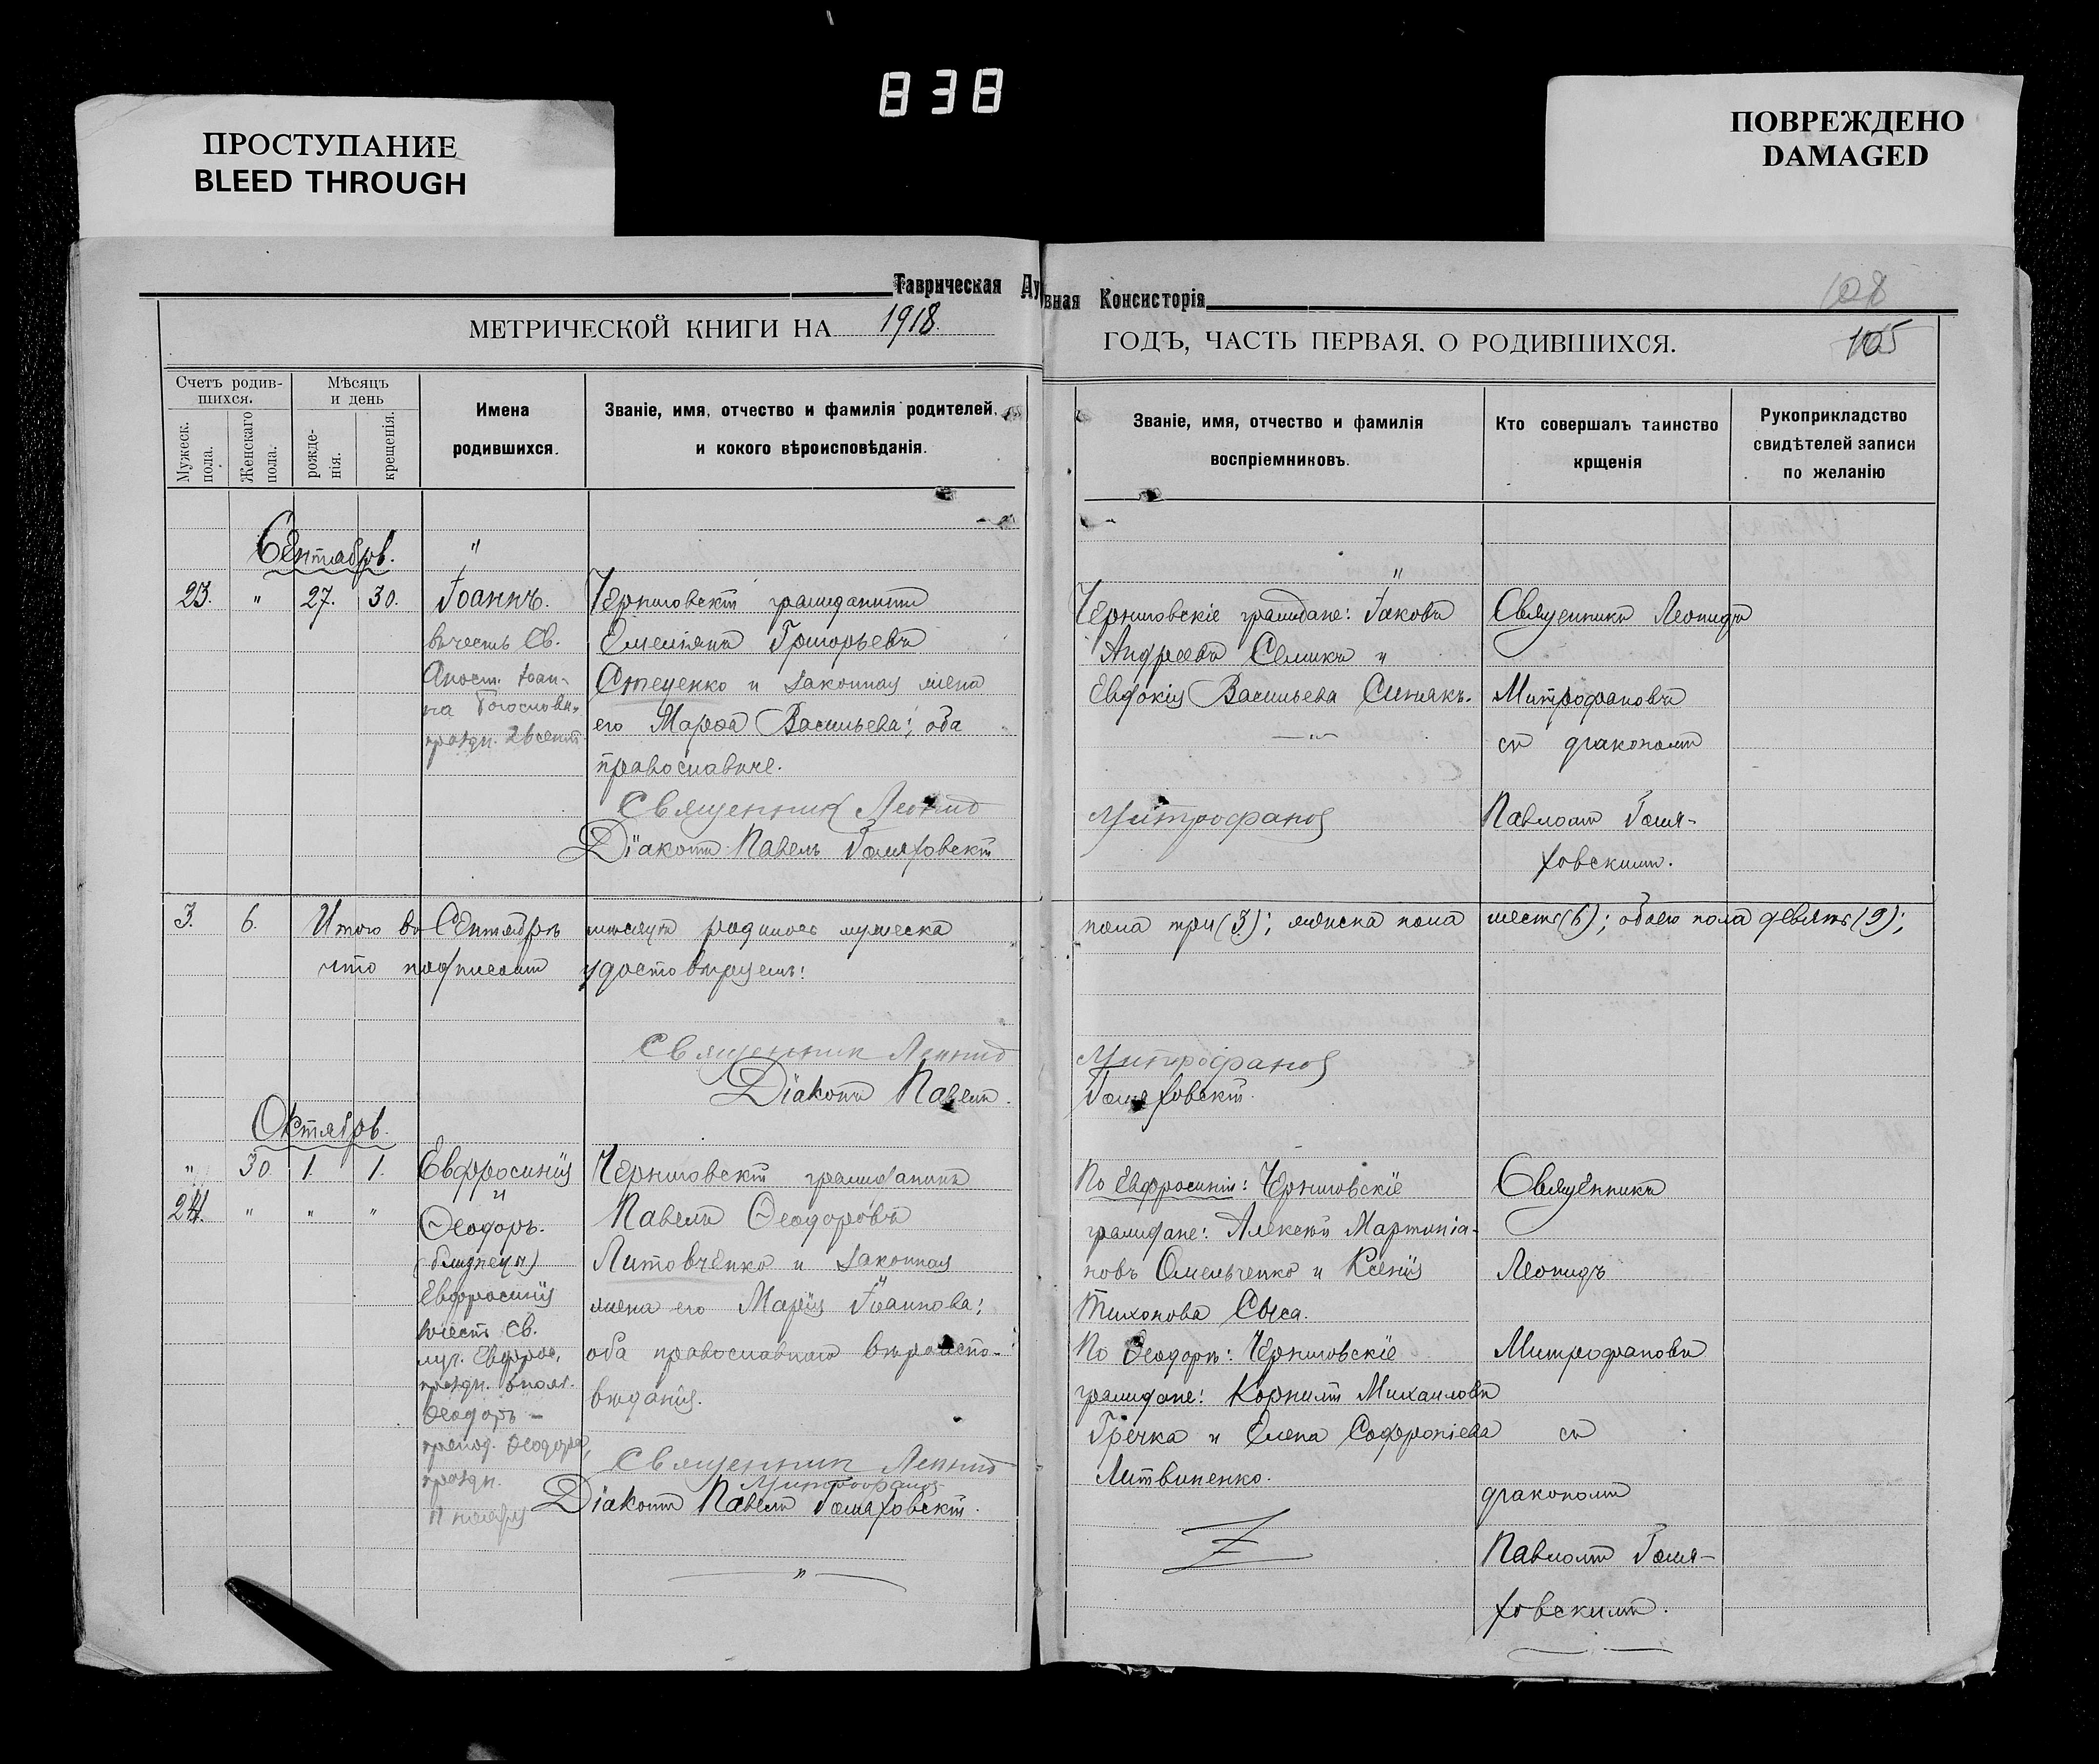 838
ПРОСТУПАНИЕ
BLEED THROUGH
ПОВРЕЖДЕНО
DAMAGED
Таврическая Ду
вная Консисторія
108
105
МЕТРИЧЕСКОЙ КНИГИ НА 1918.
ГОДЪ, ЧАСТЬ ПЕРВАЯ, О РОДИВШИХСЯ.
Счетъ родив-
шихся.
Мужеск. пола.
Женскаго пола.
Мѣсяцъ
и день
рожде-
нія.
крещенія.
Имена
родившихся.
Званіе, имя, отчество и фамилія родителей,
и кокого вѣроисповѣданія.
Званіе, имя, отчество и фамилія
воспріемниковъ.
Кто совершалъ таинство
крщенія
Рукоприкладство
свидѣтелей записи
по желанію
Сентябрь.
23. " 27. 30.
Іоаннъ.
въ честь Св.
Апост. Іоан-
на Богослова,
праздн. 26 сент.
Черниговскій гражданинъ
Емеліянъ Григорьевъ
Стеценко и законная жена
его Марѳа Васильева; оба
православные.
Священник Леонид
Діаконъ Павелъ Гомяховскій
Черниговскіе граждане: Іаковъ
Андреевъ Семикъ и
Евдокія Васильева Синякъ.
Митрофанов
Священникъ Леонидъ
Митрофановъ
съ діакономъ
Павломъ Гомя-
ховскимъ.
3. 6. Итого въ Сентябрѣ мѣсяцѣ родилось мужеска пола три (3); женска пола шесть (6); обоего пола девять (9);
что подписомъ удостовѣряемъ:
Священник Леонид Митрофанов
Діаконъ Павелъ Гомяховскій.
Октябрь.
" 30. 1. 1.
24. " " "
Евфросинія
и
Ѳеодоръ.
(близнецы)
Евфросинія
въ честь Св.
муч. Евфрос.
праздн. 6 нояб.
Ѳеодоръ –
препод. Ѳеодора,
праздн.
11 ноября
Черниговскій гражданинъ
Павелъ Ѳеодоровъ
Литовченко и законная
жена его Марія Іоаннова;
оба православнаго вѣроиспо-
вѣданія.
Священник Леонид
Митрофанов
Діаконъ Павелъ Гомяховскій.
По Евфросиніи: Черниговскіе
граждане: Алексѣй Мартиніа-
новъ Омельченко и Ксенія
Тихонова Сыса.
По Ѳеодорѣ: Черниговскіе
граждане: Корнилій Михаиловъ
Гречка и Елена Софроніева
Литвиненко.
Священникъ
Леонидъ
Митрофановъ
съ
діакономъ
Павломъ Гомя-
ховскимъ.